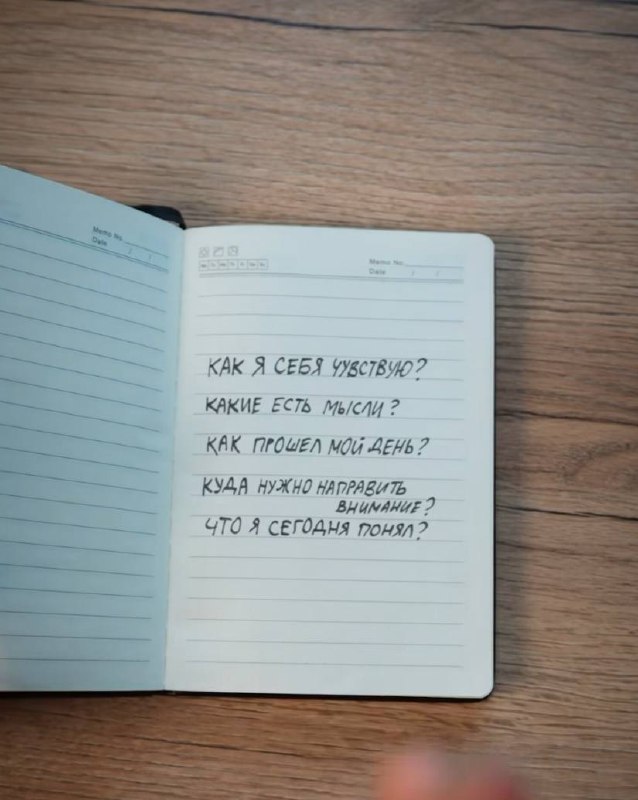 Memo No.
Date / /
Memo No.
Date / /
КАК Я СЕБЯ ЧУВСТВУЮ?
КАКИЕ ЕСТЬ МЫСЛИ?
КАК ПРОШЕЛ МОЙ ДЕНЬ?
КУДА НУЖНО НАПРАВИТЬ
ВНИМАНИЕ?
ЧТО Я СЕГОДНЯ ПОНЯЛ?